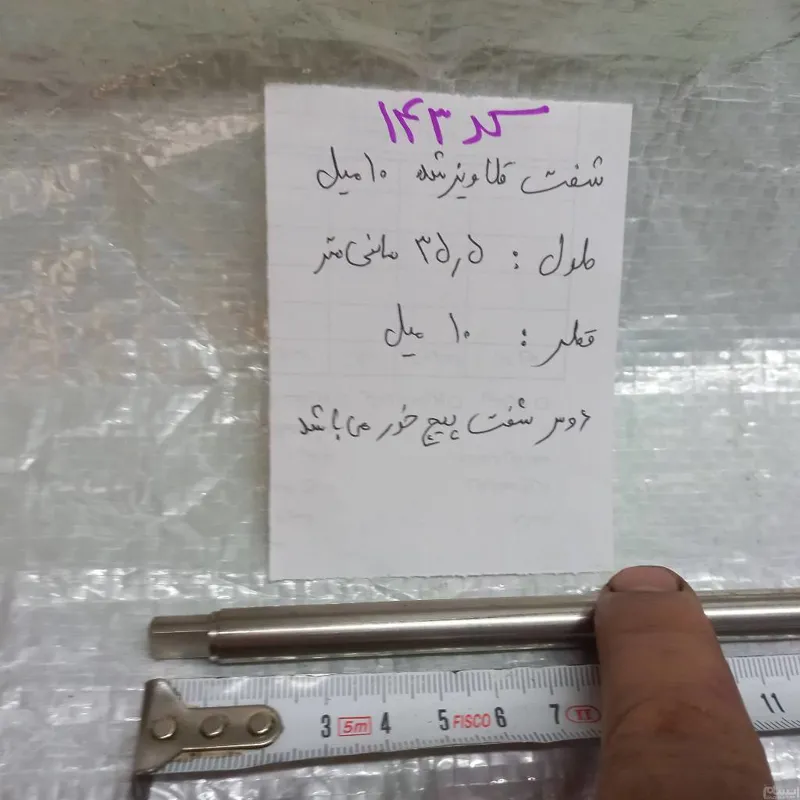 کد ۱۴۳
شفت گالوانیزه شده ۱۰ میل
طول : ۳۵٫۵ سانتی متر
قطر : ۱۰ میل
۲ سر شفت پیچ خور می باشد
3 5m 4 5 FISCO 6 7 II 11